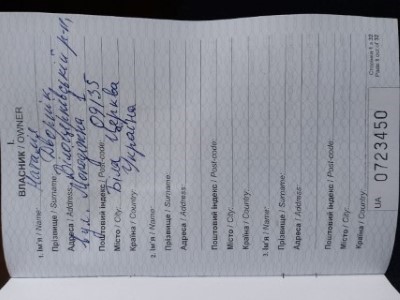 I.
ВЛАСНИК / OWNER
1. Ім'я / Name: Наталя
Прізвище / Surname: Дворнік
Адреса / Address: Білоцерківський р-н,
вул. Молодіжна 1
Поштовий індекс / Post-code: 09135
Місто / City: Біла Церква
Країна / Country: Україна
2. Ім'я / Name:
Прізвище / Surname:
Адреса / Address:
Поштовий індекс / Post-code:
Місто / City:
Країна / Country:
3. Ім'я / Name:
Прізвище / Surname:
Адреса / Address:
Поштовий індекс / Post-code:
Місто / City:
Країна / Country:
Сторінка 1 з 32
Page 1 out of 32
UA 0723450